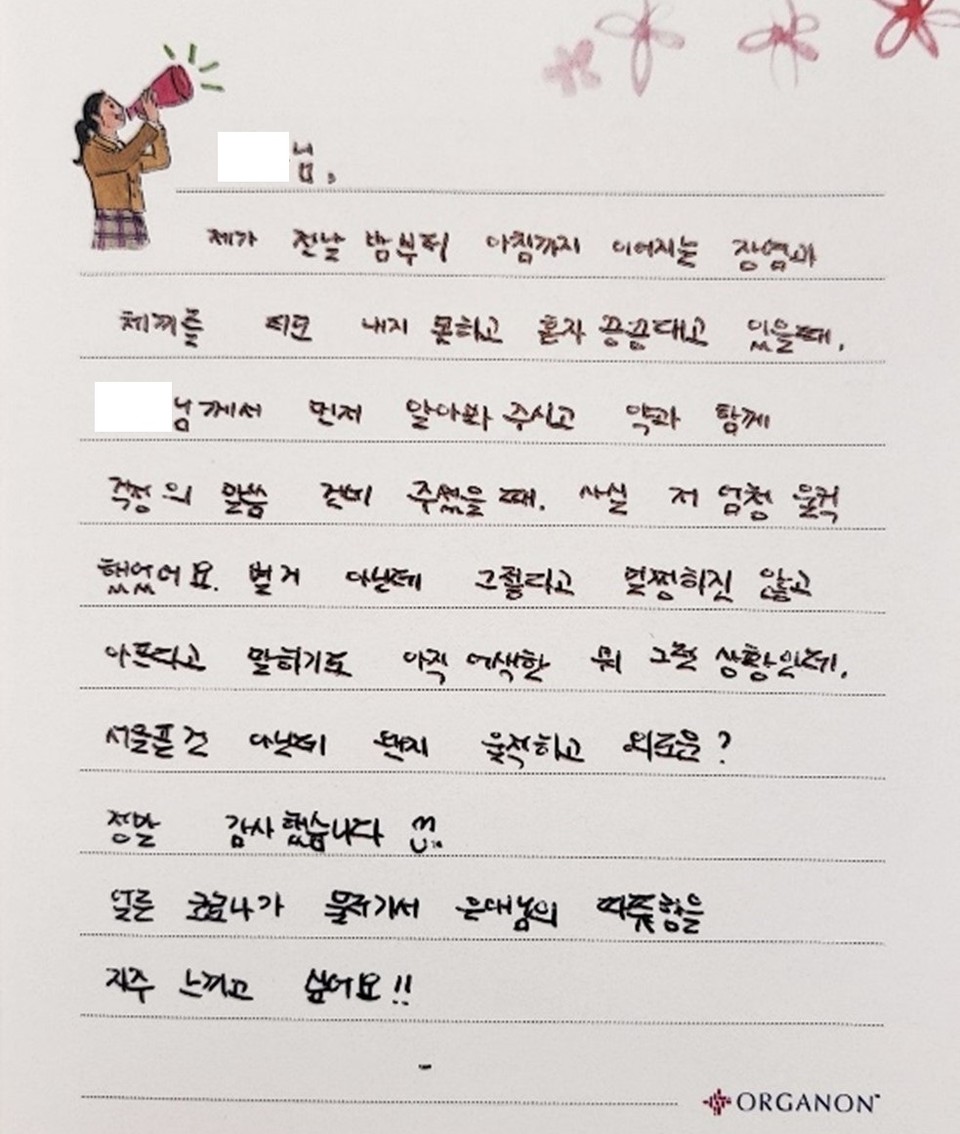 님,
제가 전날 밤부터 아침까지 이어지는 장염과
체끼를 티도 내지 못하고 혼자 끙끙대고 있을때,
님께서 먼저 알아봐 주시고 약과 함께
걱정의 말씀 건네 주셨을 때. 사실 저 엄청 울컥
했었어요. 별거 아닌데 그렇다고 멀쩡하진 않고
아프다고 말하기도 아직 어색한 뭐 그런 상황인데.
서글플건 아닌데 왠지 울적하고 외로운?
정말 감사했습니다
얼른 코로나가 물러가서 은대님의 따뜻함을
자주 느끼고 싶어요!!
-
ORGANON